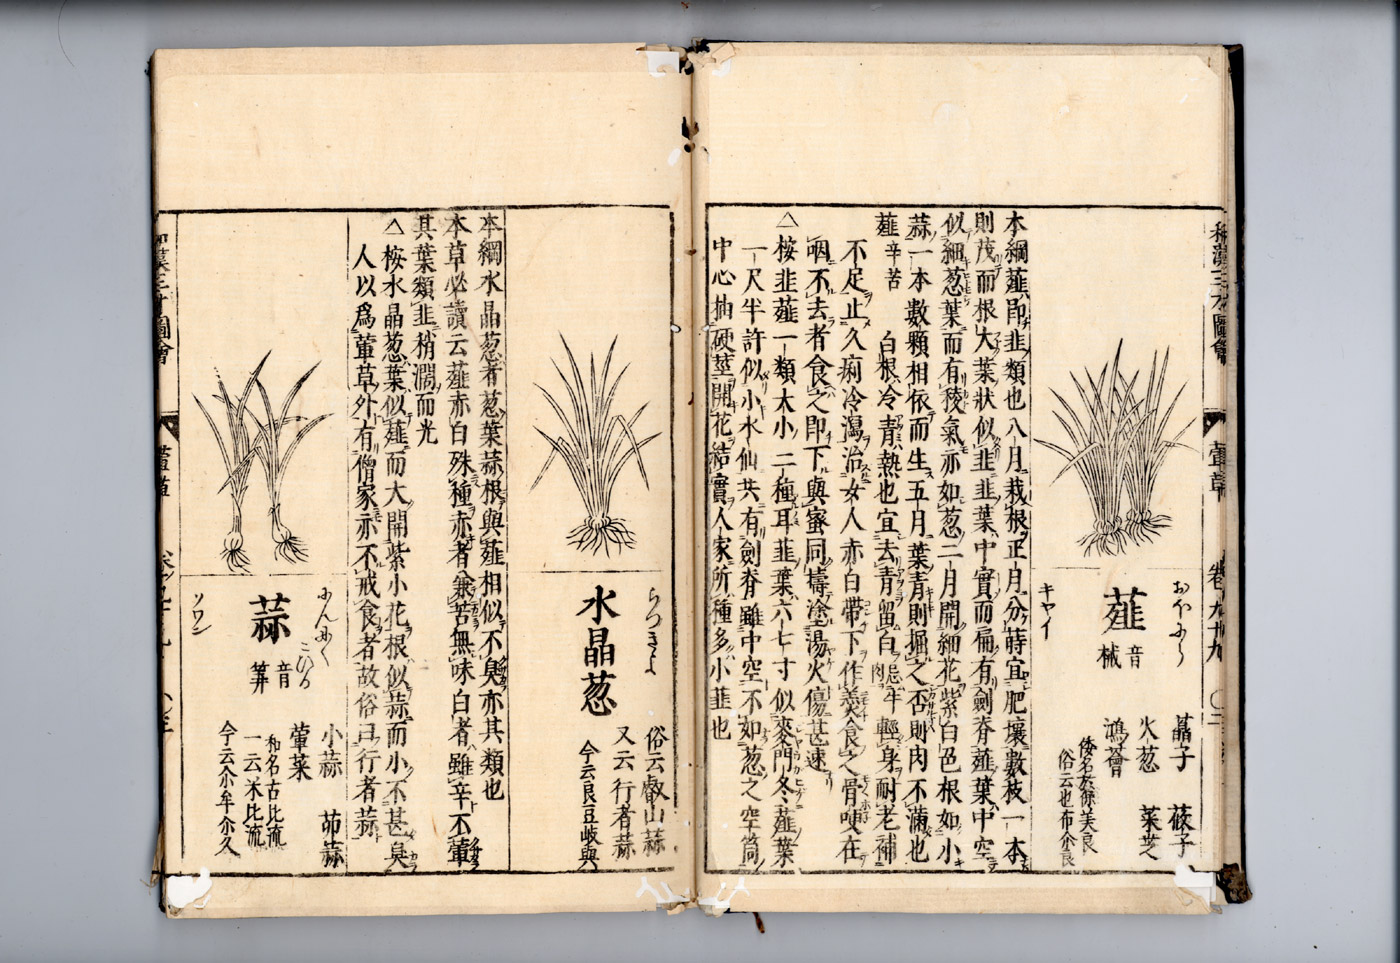 和漢三才圖會
葷草
卷ノ九十九
おほみら
薤
音械
キヤイ
藠子 莜子
火葱 菜芝
鴻薈
倭名於保美良
俗云也布介良
本綱薤即韭類也八月栽根正月分蒔宜肥壤數枝一本
則茂而根大葉狀似韭韭葉中實而扁有劍脊薤葉中空
似細葱葉而有稜氣亦如葱二月開細花紫白色根如小
蒜一本數顆相依而生五月葉青則掘之否則肉不滿也
薤 辛苦 白根冷青熱也宜去青留白 忌牛肉 輕身耐老補
不足止久痢冷瀉治女人赤白帶下作羹食之骨哽在
咽不去者食之即下與蜜同擣塗湯火傷甚速
△桉韭薤一類大小二種耳韭葉六七寸似麥門冬薤葉
一尺半許似小水仙共有劍脊雖中空不如葱之空筒
中心抽硬莖開花結實人家所種多小韭也
らつきよ
水晶葱
俗云叡山蒜
又云行者蒜
今云良豆岐與
本綱水晶葱者葱葉蒜根與薤相似不臭亦其類也
本草必讀云薤赤白殊種赤者兼苦無味白者雖辛不葷
其葉類韭稍濶而光
△桉水晶葱葉似薤而大開紫小花根似蒜而小不甚臭
人以爲葷草外有僧家亦不戒食者故俗曰行者蒜
にんにく
こひる
蒜
音筭
ソワン
小蒜 茆蒜
葷菜
和名古比流
一云米比流
今云尒牟尒久
和漢三才圖會
葷草